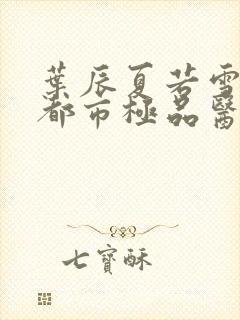 葉辰夏若雪
都市極品醫
七寶酥